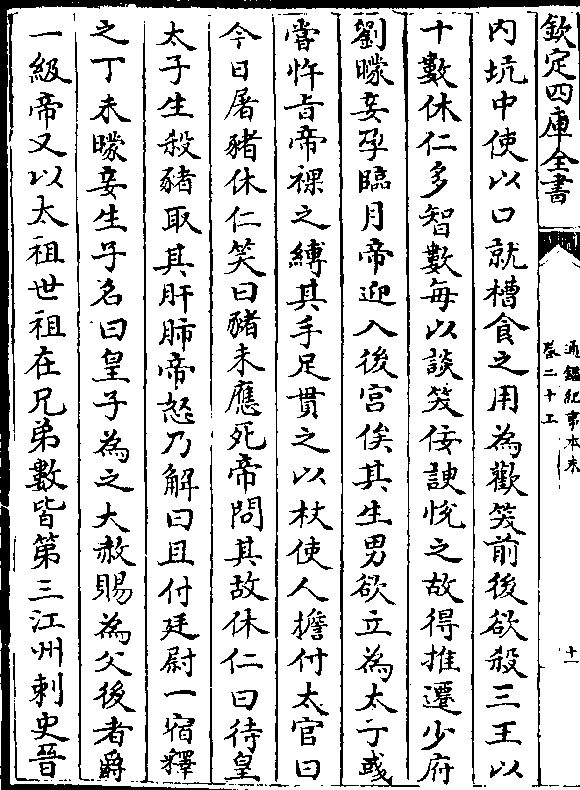 欽定四庫全書
通鑑紀事本末
卷二十上
十一
内坑中使以口就槽食之用為歡笑前後欲殺三王以
十數休仁多智數每以談笑佞諛悅之故得推遷少府
劉曚妾孕臨月帝迎入後宮俟其生男欲立為太子彧
嘗忤旨帝裸之縛其手足貫之以杖使人擔付太官曰
今日屠豬休仁笑曰豬未應死帝問其故休仁曰待皇
太子生殺豬取其肝肺帝怒乃解曰且付廷尉一宿釋
之丁未曚妾生子名曰皇子為之大赦賜為父後者爵
一級帝又以太祖世祖在兄弟數皆第三江州刺史晉